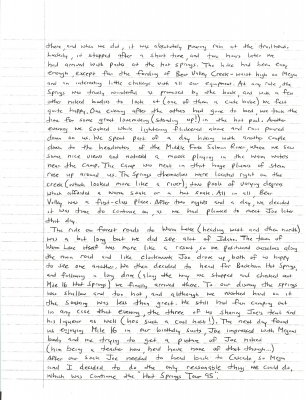 there, and when we did, it was absolutely pouring rain at the trailhead,
luckily it stopped after a short time and two hours later we
had arrived with packs at the hot springs. The hike had been easy
enough, except for the fording of Bear Valley Creek - waist high on Megan
and an interesting little challenge with all our equipment. At any rate, the
Springs was truely wonderful as promised by the book and with a few
other naked bodies to look at (one of them a cute babe) we felt
quite happy. One evening after the others had gone to bed we took the
time for some great lovemaking (standing up!) in the hot pool. Another
evening we soaked while lightning flickered above and rain poured
down on us. We spent part of a day hiking with another couple
down to the headwaters of the Middle Fork Salmon River, where we saw
some nice views and noticed a moose playing in the warm waters
near the camp. The camp was neat in that huge plumes of steam
rose up around us. The Springs themselves were located right on the
creek (which looked more like a river), two pools of varying degree
which afforded a warm soak or a hot soak. All in all Bear
Valley was a first-class place. After two nights and a day, we decided
it was time to continue on as we had planned to meet Joe later
that day.
The ride on forest roads to Warm Lake (heading west and then north)
was a bit long but we did see alot of Idaho. The town of
Warm Lake itself was more like a resort so we positioned ourselves along
the main road and like clockwork Joe drove up, both of us happy
to see one another. We then decided to head for
and following a long drive (along the way we stopped and checked out
Mile 16 Hot Springs) we finally arrived there. To our dismay the springs
was shallow and too hot, and although we worked hard on it
the soaking was less than great. We still had fun camping out
in any case that evening the three of us sharing Joe's tent and
his liquor as well (Joe's such a cool host!). The next day found
us enjoying Mile 16 in our birthday suits, Joe impressed with Megan's
body and me trying to get a picture of Joe naked
(him being a teacher now he'd have none of that though...)
After our soak Joe needed to head back to Cascade, so Megan
and I decided to do the only reasonable thing we could do,
which was continue the Hot Springs Tour '95.